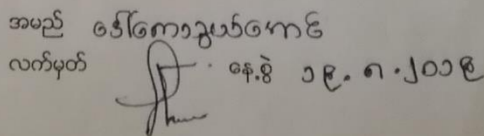 အမည် ဒေါ်ကေသွယ်အောင်
လက်မှတ် နေ့စွဲ ၁၉.၈.၂၀၁၉